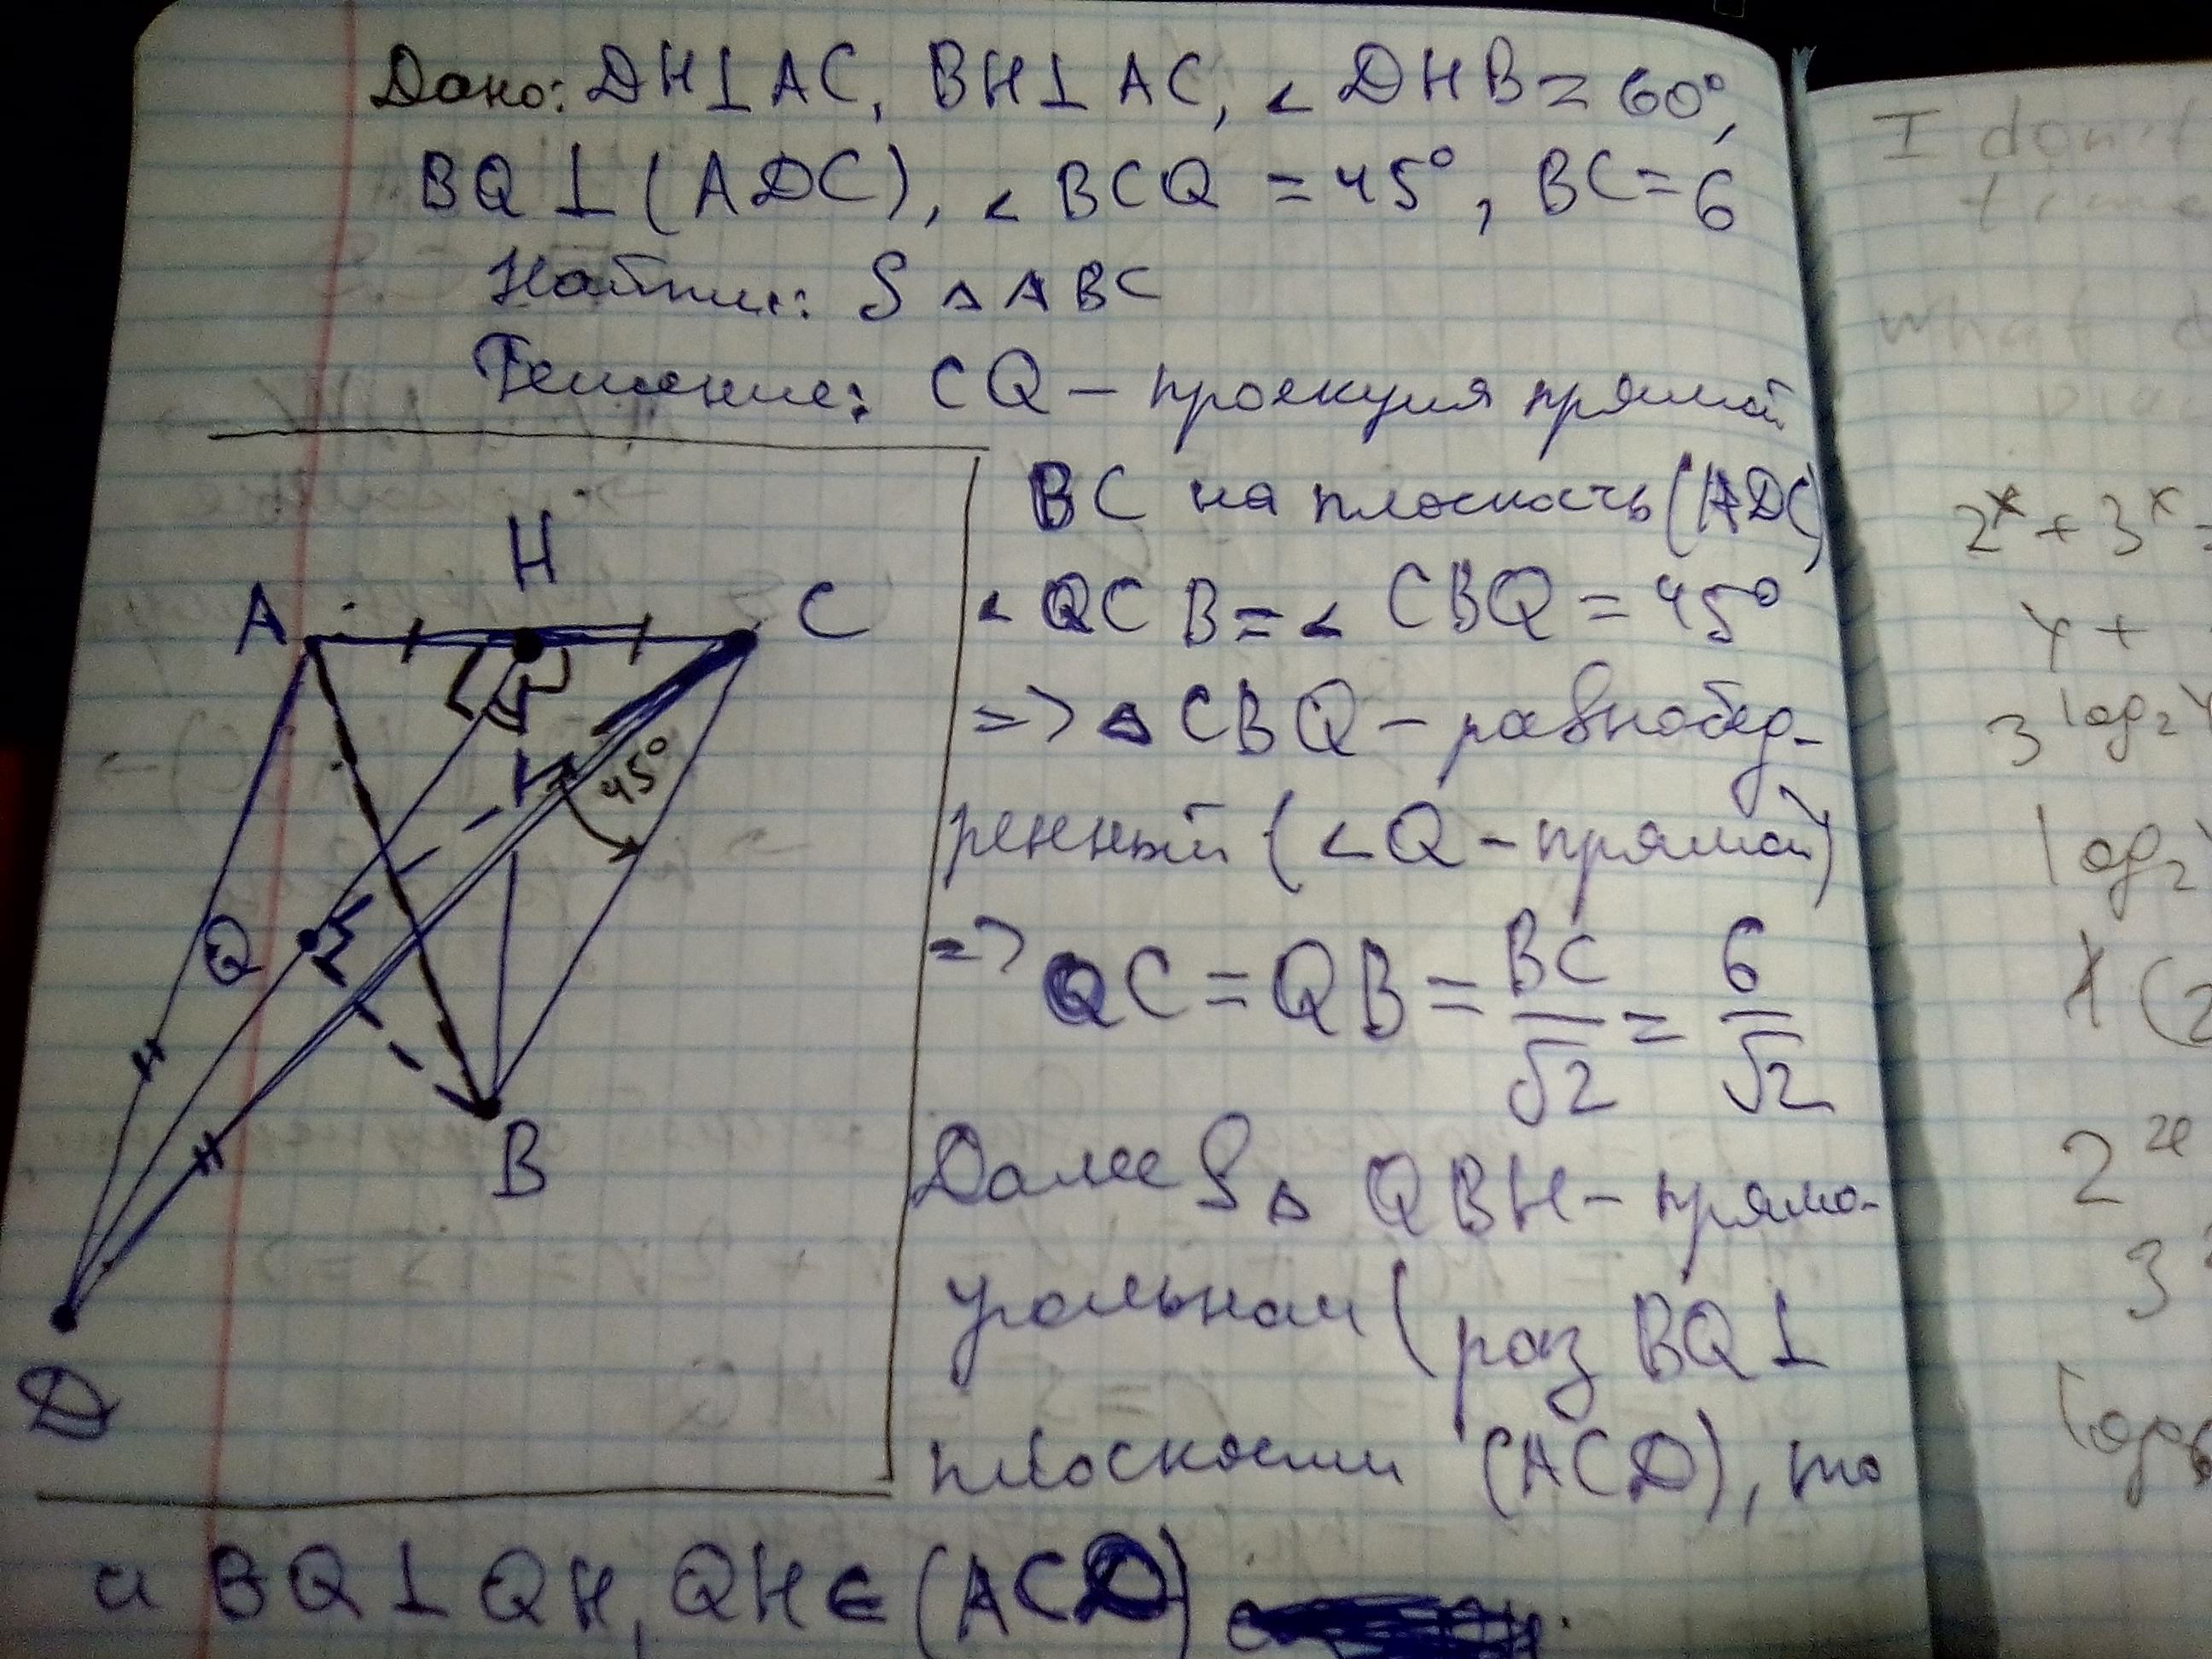 Дано: DH⊥AC, BH⊥AC, ∠DHB = 60°,
BQ⊥(ADC), ∠BCQ = 45°, BC = 6
Найти: S△ABC
Решение: CQ – проекция прямой
BC на плоскость (ADC)
∠QCB = ∠CBQ = 45°
=> △CBQ – равнобед-
ренный (∠Q – прямой)
=> QC = QB = BC/√2 = 6/√2
Далее S△ QBH – прямо-
угольный (раз BQ⊥
плоскости (ACD), то
и BQ⊥QH, QH∈(ACD)
A
H
C
45°
Q
B
D
I don't
time
what
2^x + 3^x =
4 +
3^log₂4
log₂
2^x
3
log₆